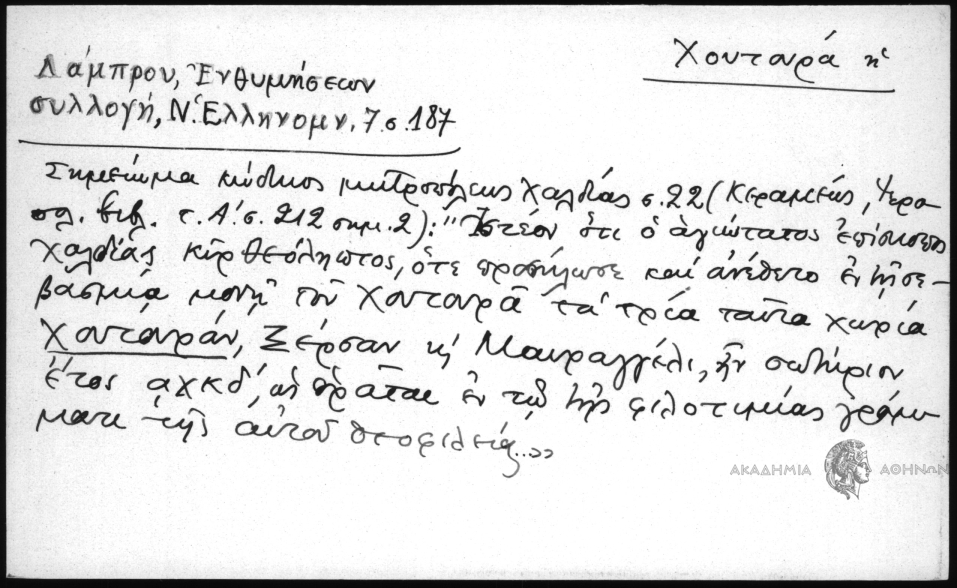 Χουτουρά ἡ
Λάμπρου, Ἐνθυμήσεων
συλλογή, Ν. Ἑλληνομν. 7. σ. 187
Σημείωμα κώδικος μητροπόλεως Χαλδίας σ. 22 (Κεραμεύς, Ἱερο-
σολ. βιβ. τ. Α΄. σ. 212 σημ. 2): "Ἰστέον ὅτι ὁ ἁγιώτατος ἐπίσκοπος
Χαλδίας κὺρ Θεόληπτος, ὅτε προσήλωσε καὶ ἀνέθετο ἐν τῇ σε-
βασμίᾳ μονῇ τοῦ Χουτουρᾶ τὰ τρία ταῦτα χωρία
Χουτουράν, Σέρσαν κὴ Μαυραγγέλι, ἦν σωτήριον
ἔτος αχκδ΄, ὡς ὁρᾶται ἐν τῷ τῆς φιλοτιμίας γράμ-
ματι τῆς αὐτοῦ θεοφιλείας..»
ΑΚΑΔΗΜΙΑ ΑΘΗΝΩΝ